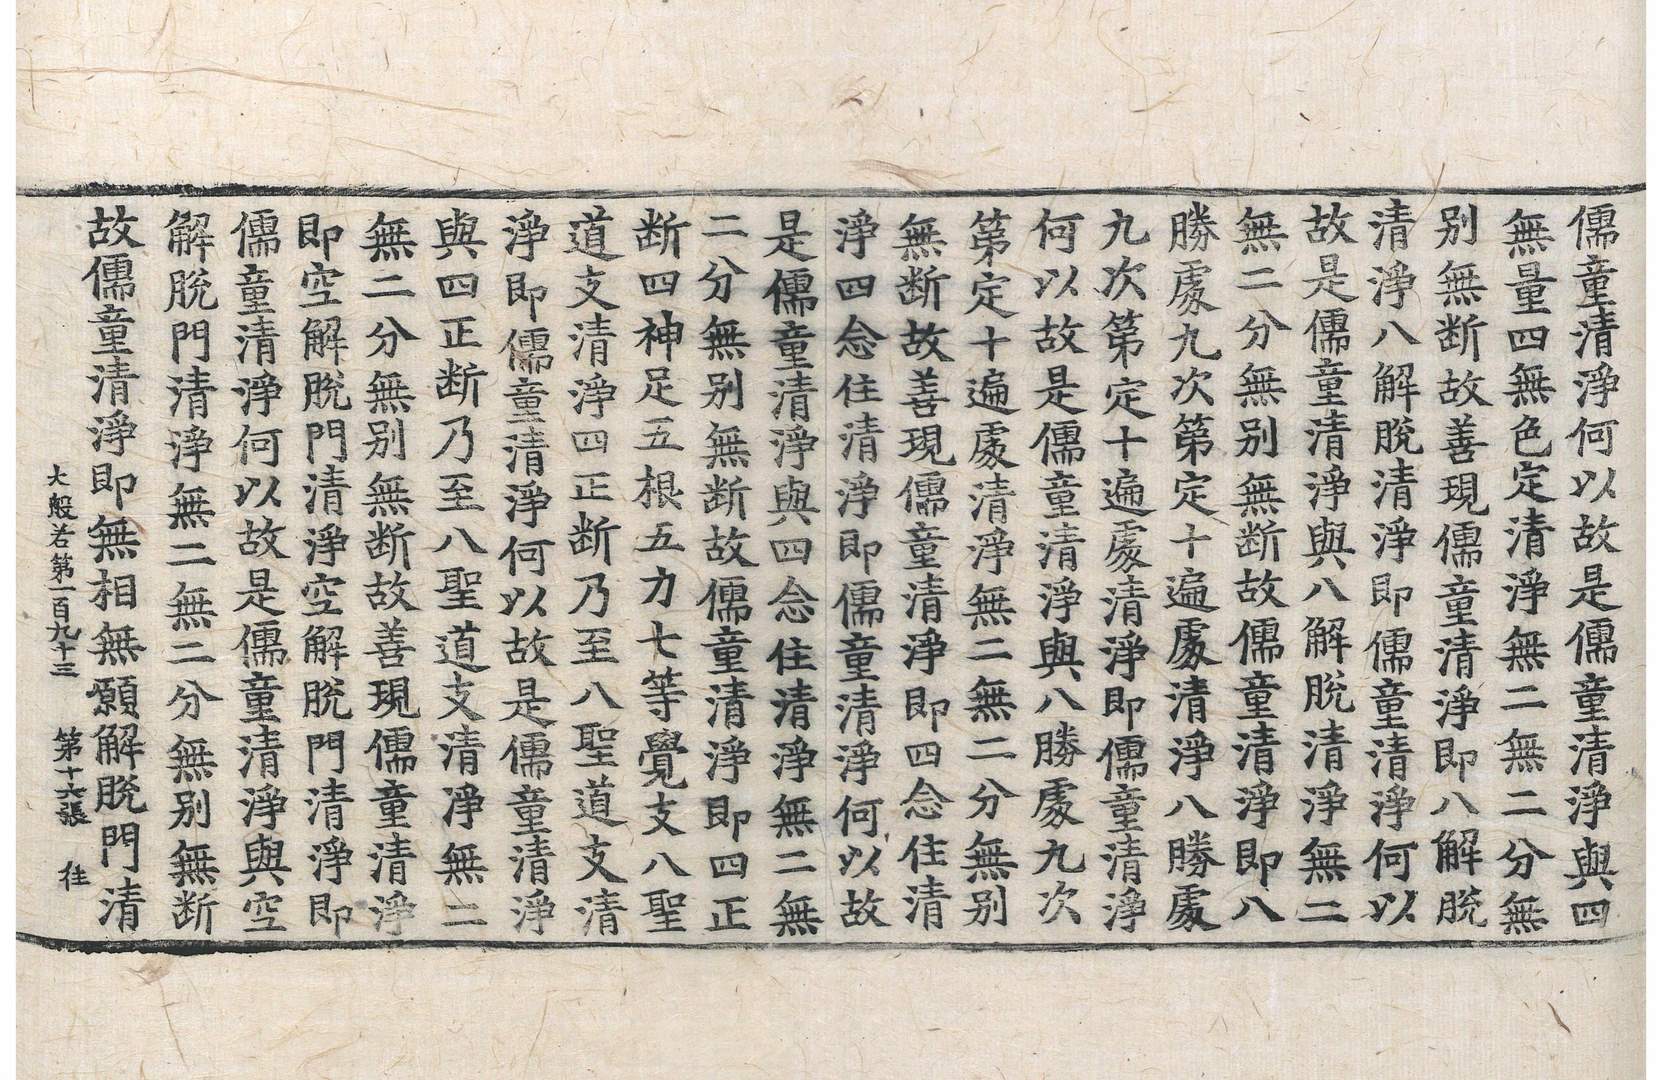 儒童清淨何以故是儒童清淨與四
無量四無色定清淨無二無二分無
别無斷故善現儒童清淨即八解脫
清淨八解脫清淨即儒童清淨何以
故是儒童清淨與八解脫清淨無二
無二分無别無斷故儒童清淨即八
勝處九次第定十遍處清淨八勝處
九次第定十遍處清淨即儒童清淨
何以故是儒童清淨與八勝處九次
第定十遍處清淨無二無二分無别
無斷故善現儒童清淨即四念住清
淨四念住清淨即儒童清淨何以故
是儒童清淨與四念住清淨無二無
二分無别無斷故儒童清淨即四正
斷四神足五根五力七等覺支八聖
道支清淨四正斷乃至八聖道支清
淨即儒童清淨何以故是儒童清淨
與四正斷乃至八聖道支清淨無二
無二分無别無斷故善現儒童清淨
即空解脫門清淨空解脫門清淨即
儒童清淨何以故是儒童清淨與空
解脫門清淨無二無二分無别無斷
故儒童清淨即無相無願解脫門清
大般若第一百九十三 第十六張 往